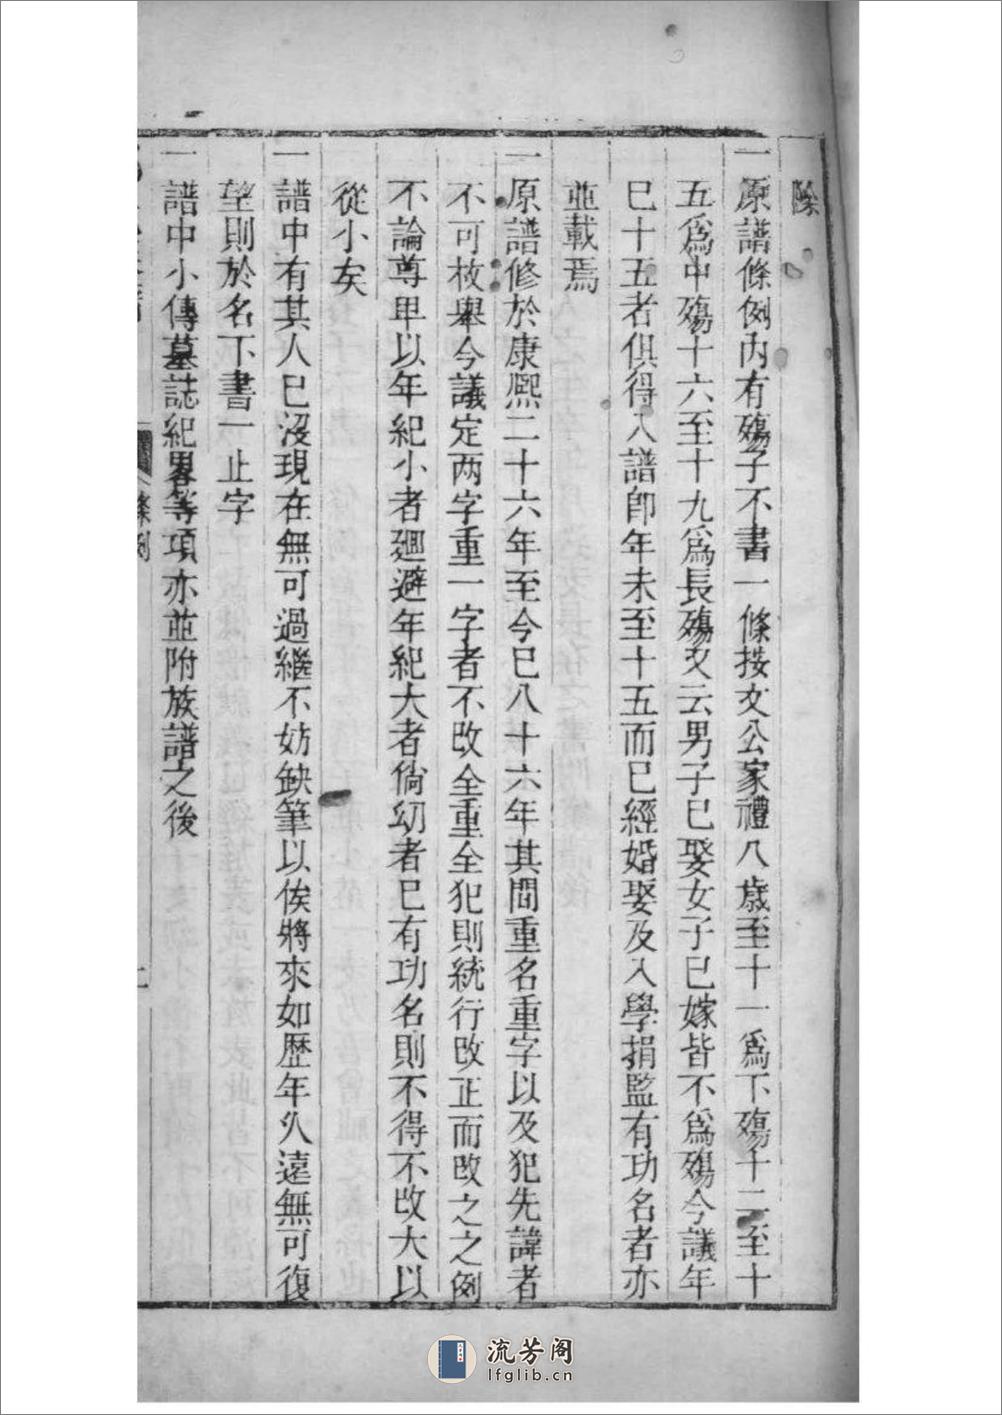 除
一原譜條例內有殤子不書一條按文公家禮八歲至十一爲下殤十二至十
五爲中殤十六至十九爲長殤又云男子已娶女子已嫁皆不爲殤今議年
已十五者俱得入譜卽年未至十五而已經婚娶及入學捐監有功名者亦
並載焉
一原譜修於康熙二十六年至今已八十六年其間重名重字以及犯先諱者
不可枚舉今議定两字重一字者不改全重全犯則統行改正而改之之例
不論尊卑以年紀小者廻避年紀大者倘幼者已有功名則不得不改大以
從小矣
一譜中有其人已沒現在無可過繼不妨缺筆以俟將來如歷年久遠無可復
望則於名下書一止字
一譜中小傳墓誌紀畧等項亦並附族譜之後
條例
流芳阁
lfglib.cn